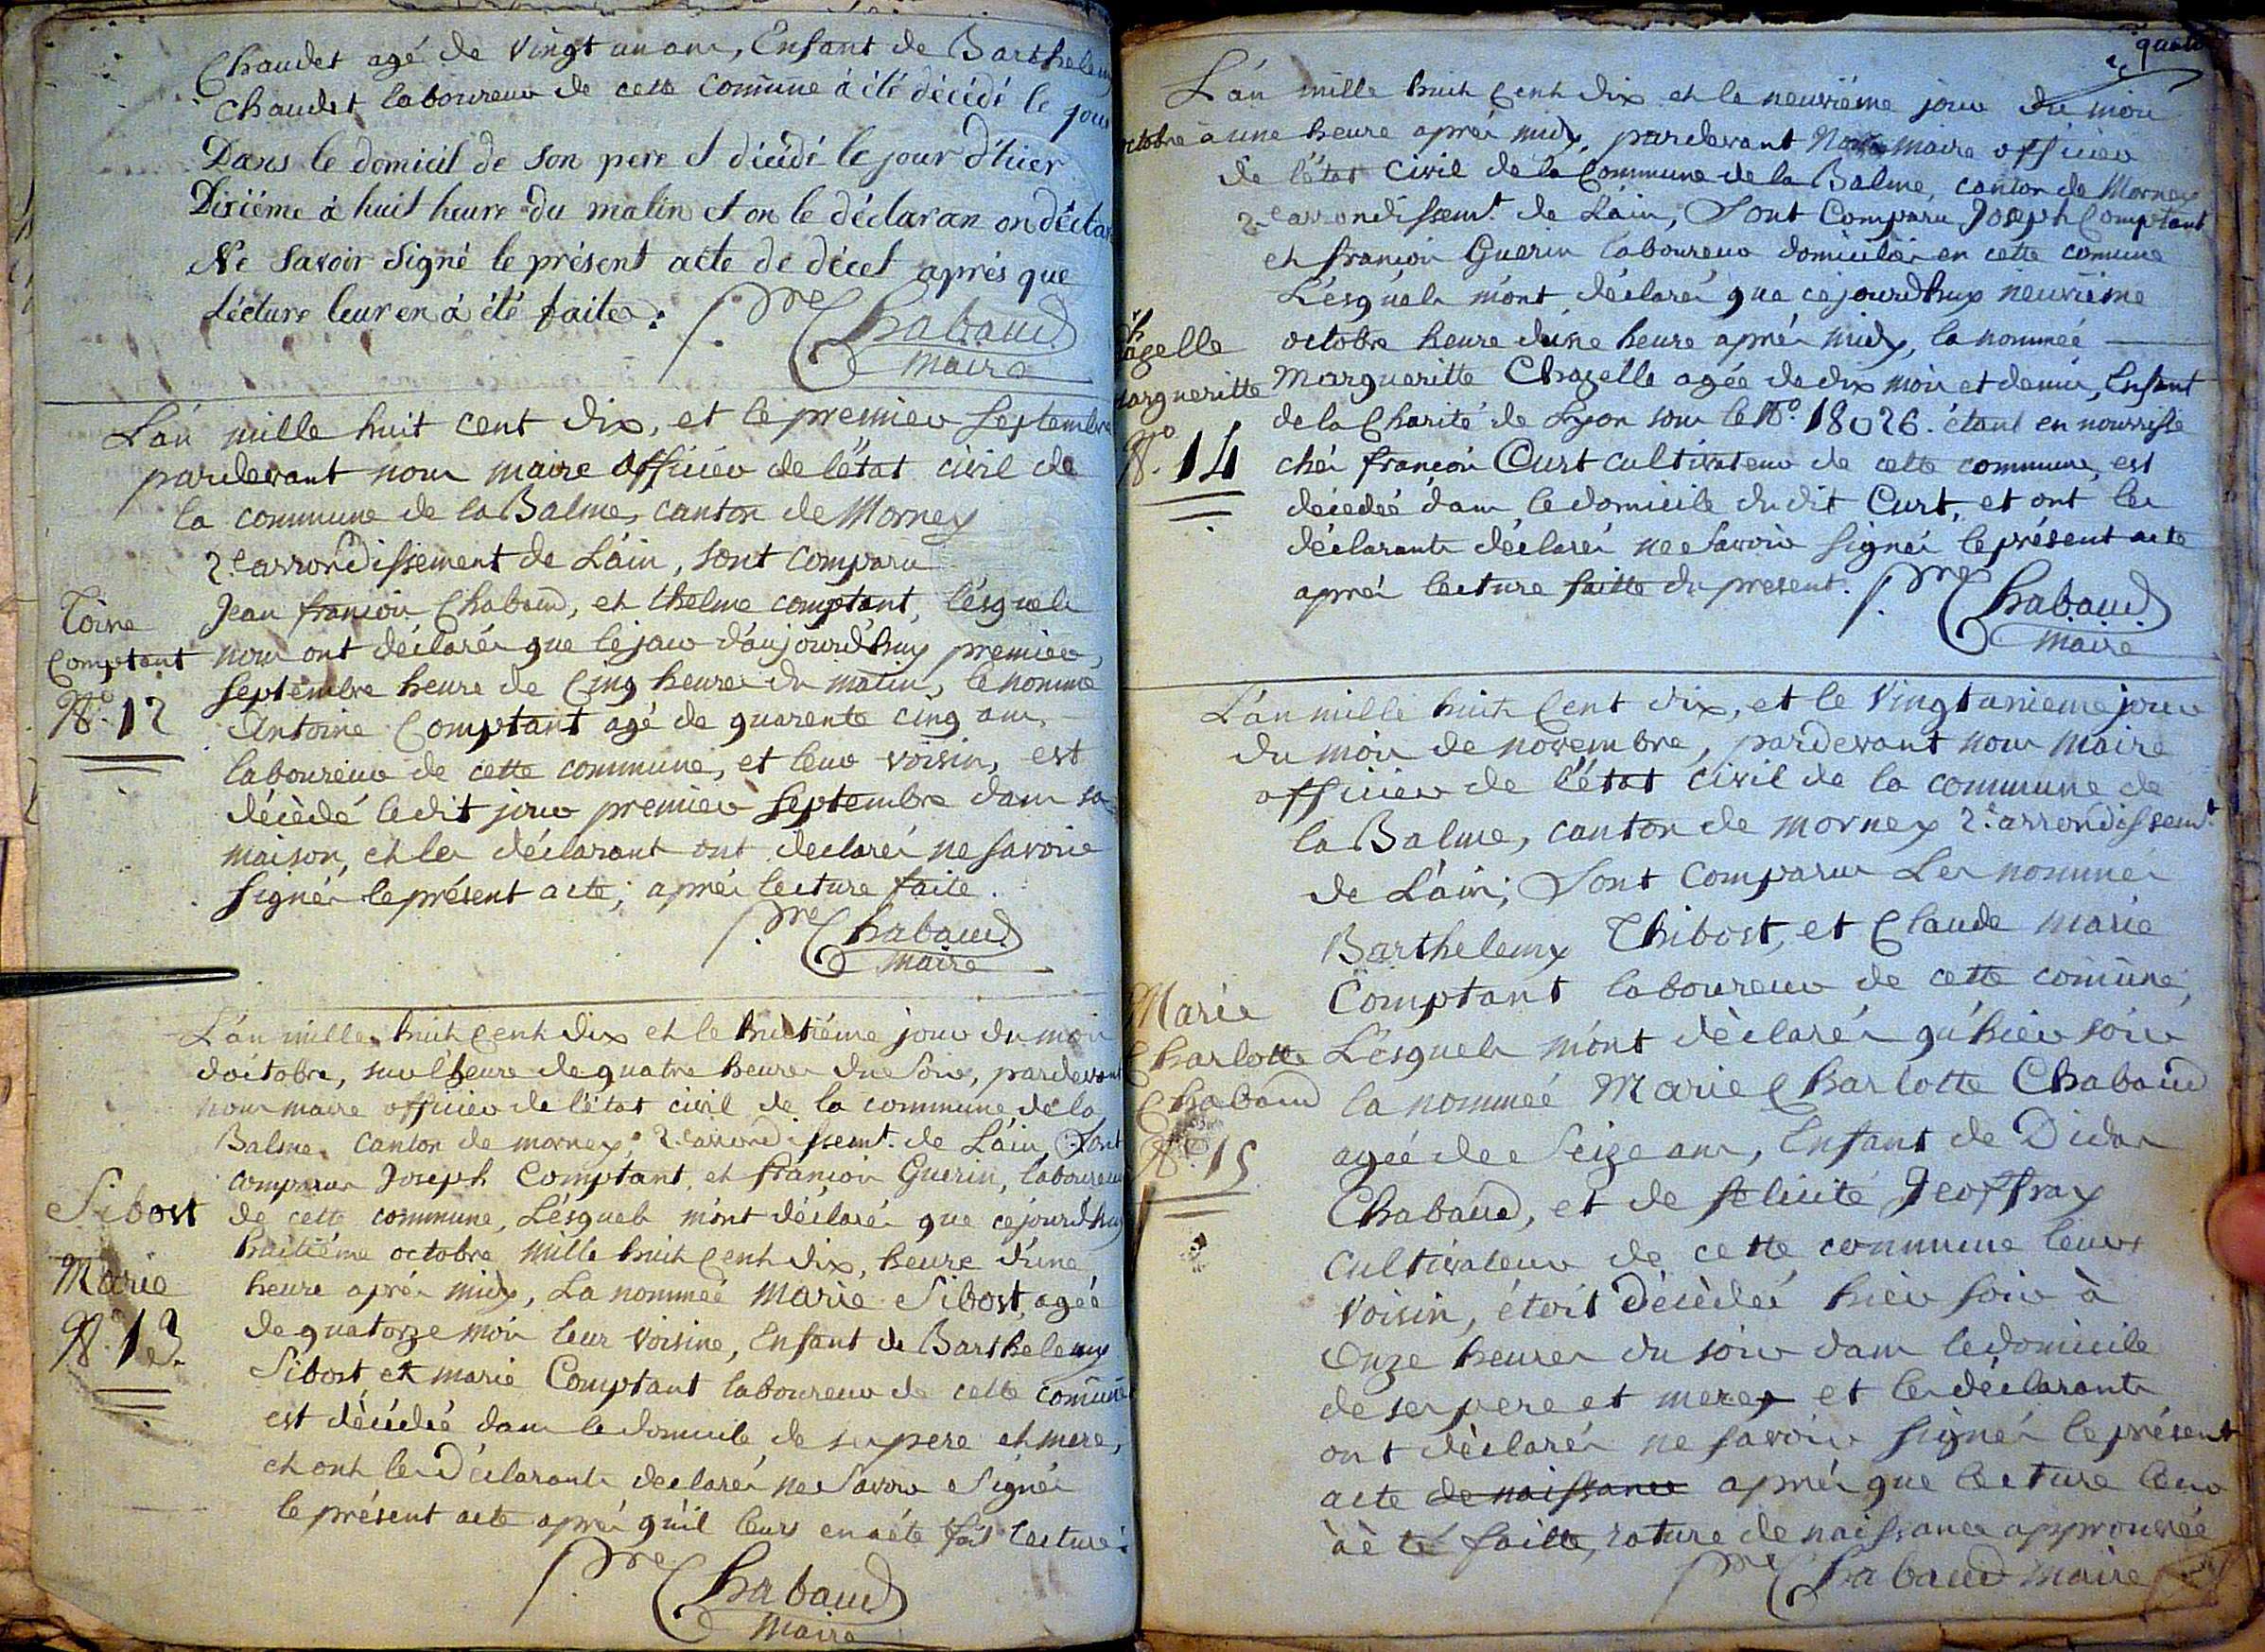 Chaudet agé de vingt un ans, Enfant de Barthelemy
Chaudet laboureur de cette commune à été décédé le jour
Dans le domicil de son pere et décédé le jour d'hier
Dixiéme à huit heure du matin et on le déclaran on déclaré
Ne savoir signé le présent acte de décet aprés que
Lécture leur en à été faite. Pre Chabaud
Maire
L'án mille huit cent dix, et le premier septembre
pardevant nous maire officier de l'état civil de
la commune de la Balme, canton de Mornex
2.e arrondissement de L'áin, sont comparu
Jean françois Chabaud, et thelme comptant, lésquels
nous ont déclarés que le jour d'aujourd'huy premier,
septembre heure de Cinq heures du matin, le nommé
Antoine Comptant agé de quarente cinq ans,
laboureur de cette commune, et leur voisin, est
décèdé ledit jour premier septembre dans sa
maison, et les déclarant ont declarés ne savoir
signér le présent acte; aprés lecture faite.
Pre Chabaud
maire
Toine
Comptant
N.o 12
L'án mille huit Cent dix et le huitiéme jour du mois
d'octobre, sur l'heure de quatre heures du Soir, pardevant
nous maire officier de l'état civil de la commune de la
Balme, canton de mornex, 2.e arrondissemt. de L'áin, Sont
comparus Joseph Comptant, et françois Guerin, laboureur
de cette commune, Lésquels m'ont déclarés que cejourd'huy
huitiéme octobre mille huit Cent dix, heure d'une
heure aprés midy, La nommeé Marie Sibost, agée
de quatorze mois leur voisine, Enfant de Barthelemy
Sibost et marie Comptant laboureur de cette comune
est dècédeé dans le domicile de ses pere et mere,
et ont les Déclarants declarés ne Savoir Signér
le présent acte aprés qu'il leurs en a éte fait lecture.
Pre Chabaud
Maire
Sibost
Marie
N.o 13
quatre
L'án mille huit Cent dix et le neuvième jour du mois
octobre à une heure aprés midy, pardevant Nous maire officier
de l'état Civil de la Commune de la Balme, canton de Mornex
2.e arrondissemt. de L'áin, Sont Comparu Joseph Comptant
et françois Guerin laboureur domiciliés en cette comune
Lésquels m'ont déclarés que cejourd'huy neuvième
octobre heure d'une heure aprés midy, la nommeé
Margueritte Chazelle agée de dix mois et demis, Enfant
de la Charité de Lyon sous le N.o 18026. étant en nourrisse
chés françois Curt cultivateur de cette commune, est
décedeé dans le domicile du dit Curt, et ont les
déclarants déclarés ne Savoir signér le présent acte
aprés lecture faitte du present. Pre Chabaud
Maire
Chazelle
Margueritte
N.o 14
L'án mille huit Cent dix, et le vingt unieme jour
du mois de novembre, pardevant nous Maire
officier de l'état civil de la commune de
la Balme, canton de mornex 2.e arrondissemt
de L'áin; Sont Comparus Les nommés
Barthelemy Thibost, et Claude marie
Comptant laboureur de cette comune,
Lésquels m'ont dèclarés qu'hier soir
la nommeé Marie Charlotte Chabaud
agée de Seize ans, Enfant de Didas
Chabaud, et de felicité Jeoffray
Cultivateur de cette commune leurs
Voisin, étoit Décèdeé hièr soir à
Onze heures du soir dans le domicile
de ses pere et mere, et les déclarants
ont déclarés ne savoir signér le présent
acte de naissance aprés que lecture leur
à èté faitte, rature de naissance approuvée
Pre Chabaud maire
Marie
Charlotte
Chabaud
N.o 15